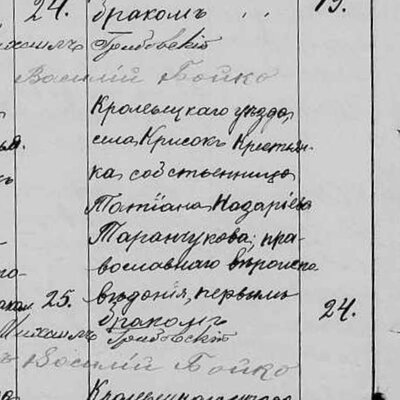 24. бракомъ 19.
Михаилъ Грибовскій
Василій Бойко
Кролевецкаго уѣзда,
села Крисокъ Крестьян-
ка собственница
Татіана Назаріева
Таранчукова; пра-
вославнаго вѣроиспо-
25. вѣданія, первымъ
бракомъ 24.
Михаилъ Грибовскій
Василій Бойко
Кролевецкаго уѣзда